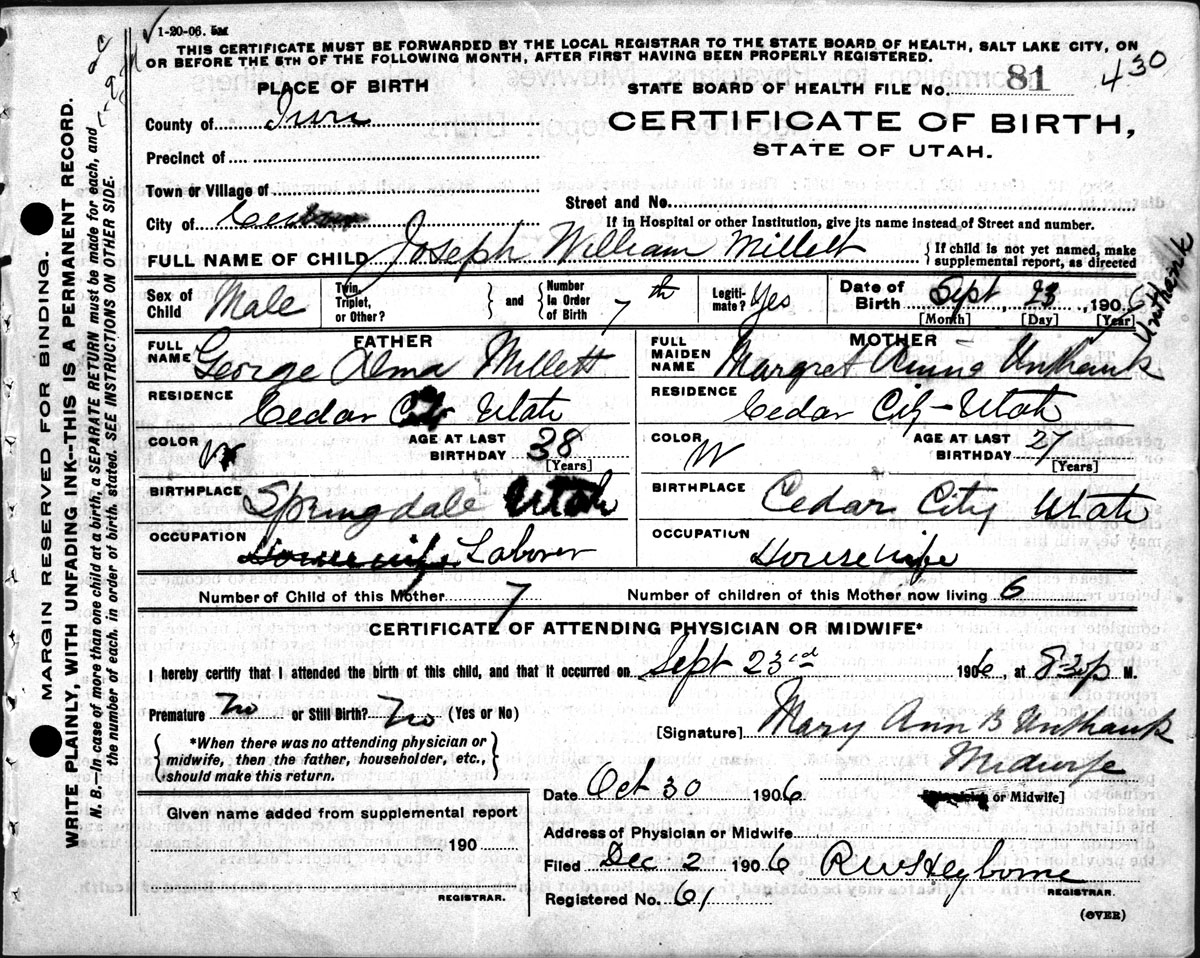 1-20-06. 5M
THIS CERTIFICATE MUST BE FORWARDED BY THE LOCAL REGISTRAR TO THE STATE BOARD OF HEALTH, SALT LAKE CITY, ON
OR BEFORE THE 5TH OF THE FOLLOWING MONTH, AFTER FIRST HAVING BEEN PROPERLY REGISTERED.
PLACE OF BIRTH
STATE BOARD OF HEALTH FILE No. 81 430
County of Iron
CERTIFICATE OF BIRTH,
STATE OF UTAH.
Precinct of
Town or Village of
Street and No.
City of Cedar
If in Hospital or other Institution, give its name instead of Street and number.
FULL NAME OF CHILD Joseph William Millett
{ If child is not yet named, make
supplemental report, as directed
Sex of Child Male
Twin, Triplet, or Other? } and { Number in Order of Birth 7th
Legitimate? Yes
Date of Birth Sept 23, 1906
[Month] [Day] [Year]
Unthank
FATHER
FULL NAME George Alma Millett
RESIDENCE Cedar City Utah
COLOR W AGE AT LAST BIRTHDAY 38 [Years]
BIRTHPLACE Springdale Utah
OCCUPATION Housewife Laborer
MOTHER
FULL MAIDEN NAME Margret Unthank
RESIDENCE Cedar City - Utah
COLOR W AGE AT LAST BIRTHDAY [Years]
BIRTHPLACE Cedar City Utah
OCCUPATION Housewife
Number of Child of this Mother 7 Number of children of this Mother now living 6
CERTIFICATE OF ATTENDING PHYSICIAN OR MIDWIFE*
I hereby certify that I attended the birth of this child, and that it occurred on Sept 23rd 1906, at 8-30 p M.
Premature No or Still Birth? No (Yes or No)
{ *When there was no attending physician or
midwife, then the father, householder, etc.,
should make this return. }
[Signature] Mary Ann B Unthank
Midwife
or Midwife]
Date Oct 30 1906
Given name added from supplemental report
190
REGISTRAR.
Address of Physician or Midwife
Filed Dec 2 1906 R W Heyborne
REGISTRAR.
Registered No. 61
(OVER)
MARGIN RESERVED FOR BINDING.
WRITE PLAINLY, WITH UNFADING INK--THIS IS A PERMANENT RECORD.
N. B.—In case of more than one child at a birth, a SEPARATE RETURN must be made for each, and
the number of each, in order of birth, stated. SEE INSTRUCTIONS ON OTHER SIDE.